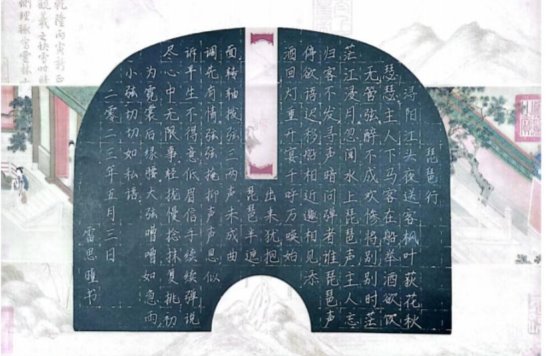 琵琶行
浔阳江头夜送客枫叶荻花秋
瑟瑟主人下马客在船举酒欲饮
无管弦醉不成欢惨将别别时茫
茫江浸月忽闻水上琵琶声主人忘
归客不发寻声暗问弹者谁琵琶声
停欲语迟移船相近邀相见添
酒回灯重开宴千呼万唤始
出来犹抱
琵琶半遮
面转轴拨弦三两声未成曲
调先有情弦弦掩抑声声思似
诉平生不得意低眉信手续续弹说
尽心中无限事轻拢慢捻抹复挑初
为霓裳后绿腰大弦嘈嘈如急雨
小弦切切如私语
二零二三年五月三日
雷思瞳书